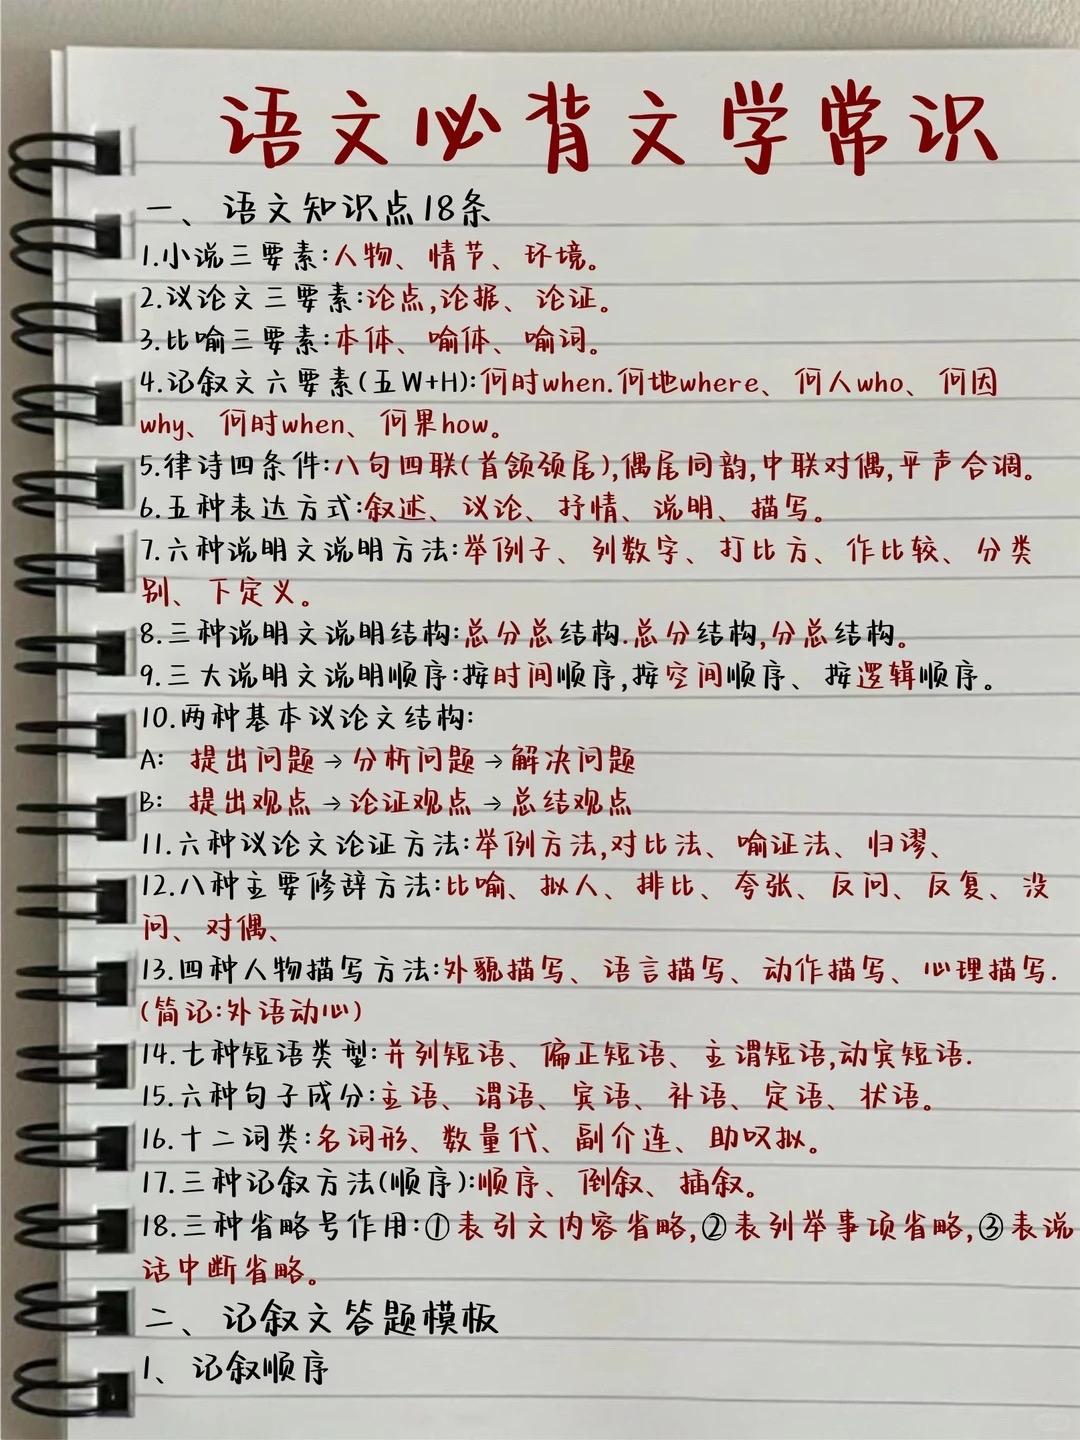 语文必背文学常识
一、语文知识点18条
1.小说三要素:人物、情节、环境。
2.议论文三要素:论点,论据、论证。
3.比喻三要素:本体、喻体、喻词。
4.记叙文六要素(五W+H):何时when.何地where、何人who、何因
why、何时when、何果how。
5.律诗四条件:八句四联(首颔颈尾),偶尾同韵,中联对偶,平声合调。
6.五种表达方式:叙述、议论、抒情、说明、描写。
7.六种说明文说明方法:举例子、列数字、打比方、作比较、分类
别、下定义。
8.三种说明文说明结构:总分总结构.总分结构,分总结构。
9.三大说明文说明顺序:按时间顺序,按空间顺序、按逻辑顺序。
10.两种基本议论文结构:
A: 提出问题→分析问题→解决问题
B: 提出观点→论证观点→总结观点
11.六种议论文论证方法:举例方法,对比法、喻证法、归谬、
12.八种主要修辞方法:比喻、拟人、排比、夸张、反问、反复、没
问、对偶、
13.四种人物描写方法:外貌描写、语言描写、动作描写、心理描写.
(简记:外语动心)
14.七种短语类型:并列短语、偏正短语、主谓短语,动宾短语.
15.六种句子成分:主语、谓语、宾语、补语、定语、状语。
16.十二词类:名词形、数量代、副介连、助叹拟。
17.三种记叙方法(顺序):顺序、倒叙、插叙。
18.三种省略号作用:①表引文内容省略,②表列举事项省略,③表说
话中断省略。
二、记叙文答题模板
1、记叙顺序